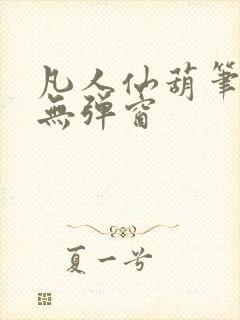 凡人仙葫筆
無彈窗
夏一号